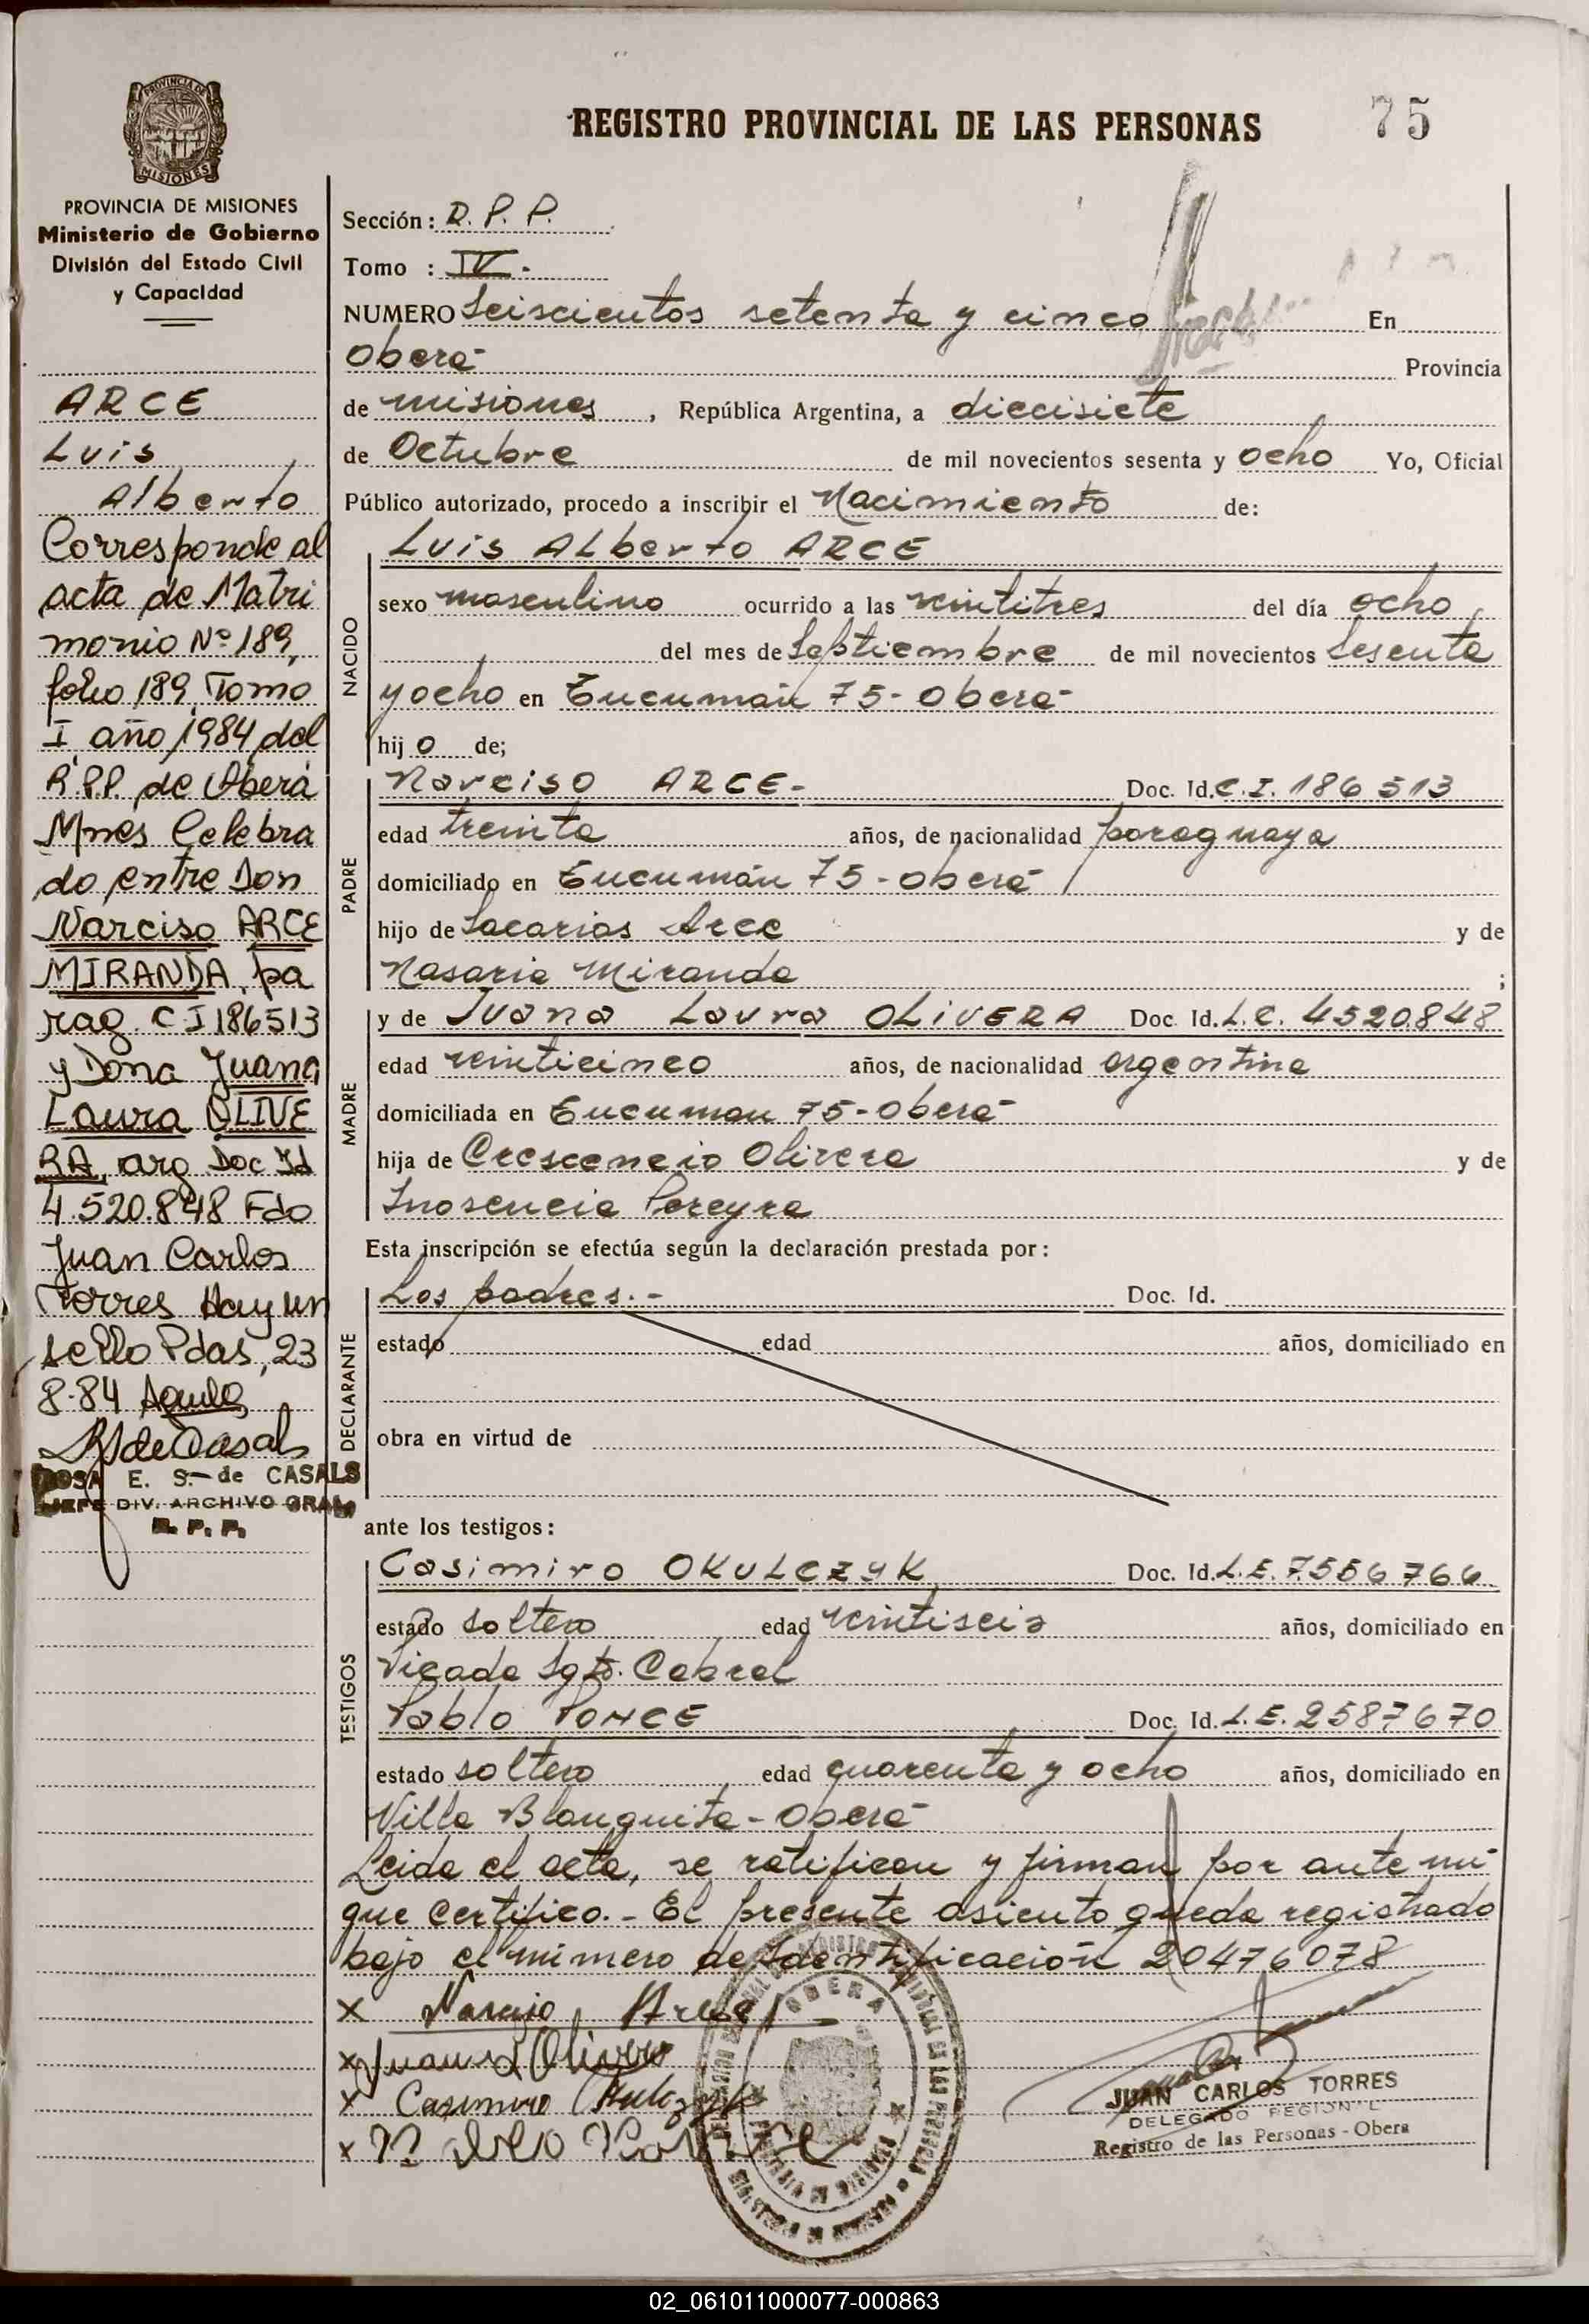 PROVINCIA DE MISIONES
REGISTRO PROVINCIAL DE LAS PERSONAS 75
PROVINCIA DE MISIONES
Ministerio de Gobierno
División del Estado Civil
y Capacidad
ARCE
Luis
Alberto
Corresponde al
acta de Matri
monio Nº 189,
folio 189, Tomo
I año 1984 del
R.P.P. de Oberá
Mnes Celebra
do entre Don
Narciso ARCE
MIRANDA, pa
rag. C I 186513
y Dona Juana
Laura OLIVE
RA, arg Doc Id
4.520.848 Fdo
Juan Carlos
Torres Hay un
sello Pdas, 23
8-84
ROSA E. S. de CASALS
JEFE DIV. ARCHIVO GRAL
R. P. P.
Sección: R. P. P.
Tomo : IV.
NUMERO Seiscientos setenta y cinco En
Oberá Provincia
de misiones, República Argentina, a diecisiete
de Octubre de mil novecientos sesenta y ocho Yo, Oficial
Público autorizado, procedo a inscribir el Nacimiento de:
NACIDO
Luis Alberto ARCE
sexo masculino ocurrido a las veintitres del día ocho
del mes de Septiembre de mil novecientos sesenta
y ocho en Tucumán 75-Oberá
hij o de;
PADRE
Narciso ARCE- Doc. Id. C.I. 186513
edad treinta años, de nacionalidad paraguaya
domiciliado en Tucumán 75-Oberá
hijo de Sacarias Arce y de
Nasaria Miranda ;
MADRE
y de Juana Laura OLIVERA Doc. Id. L.C. 4520848
edad veinticinco años, de nacionalidad argentina
domiciliada en Tucuman 75-Oberá
hija de Crescencio Olivera y de
Inosencia Pereyra
Esta inscripción se efectúa según la declaración prestada por:
DECLARANTE
Los padres.- Doc. Id.
estado edad años, domiciliado en
obra en virtud de
ante los testigos:
TESTIGOS
Casimiro OKULCZYK, Doc. Id. L.E. 7.556766
estado soltero edad veintiseis años, domiciliado en
Picada Sgto. Cabral
Pablo PONCE Doc. Id. L.E. 2587670
estado soltero edad cuarenta y ocho años, domiciliado en
Villa Blanquita-Oberá
Leida el acta, se ratifican y firman por ante mi
que certifico.- El presente asiento queda registrado
bajo el número de Identificación 20476078
x Narciso Arce
x Juana L Olivera
x Casimiro
x
OBERA
JUAN CARLOS TORRES
DELEGADO REGIONAL
Registro de las Personas - Obera
02_061011000077-000863